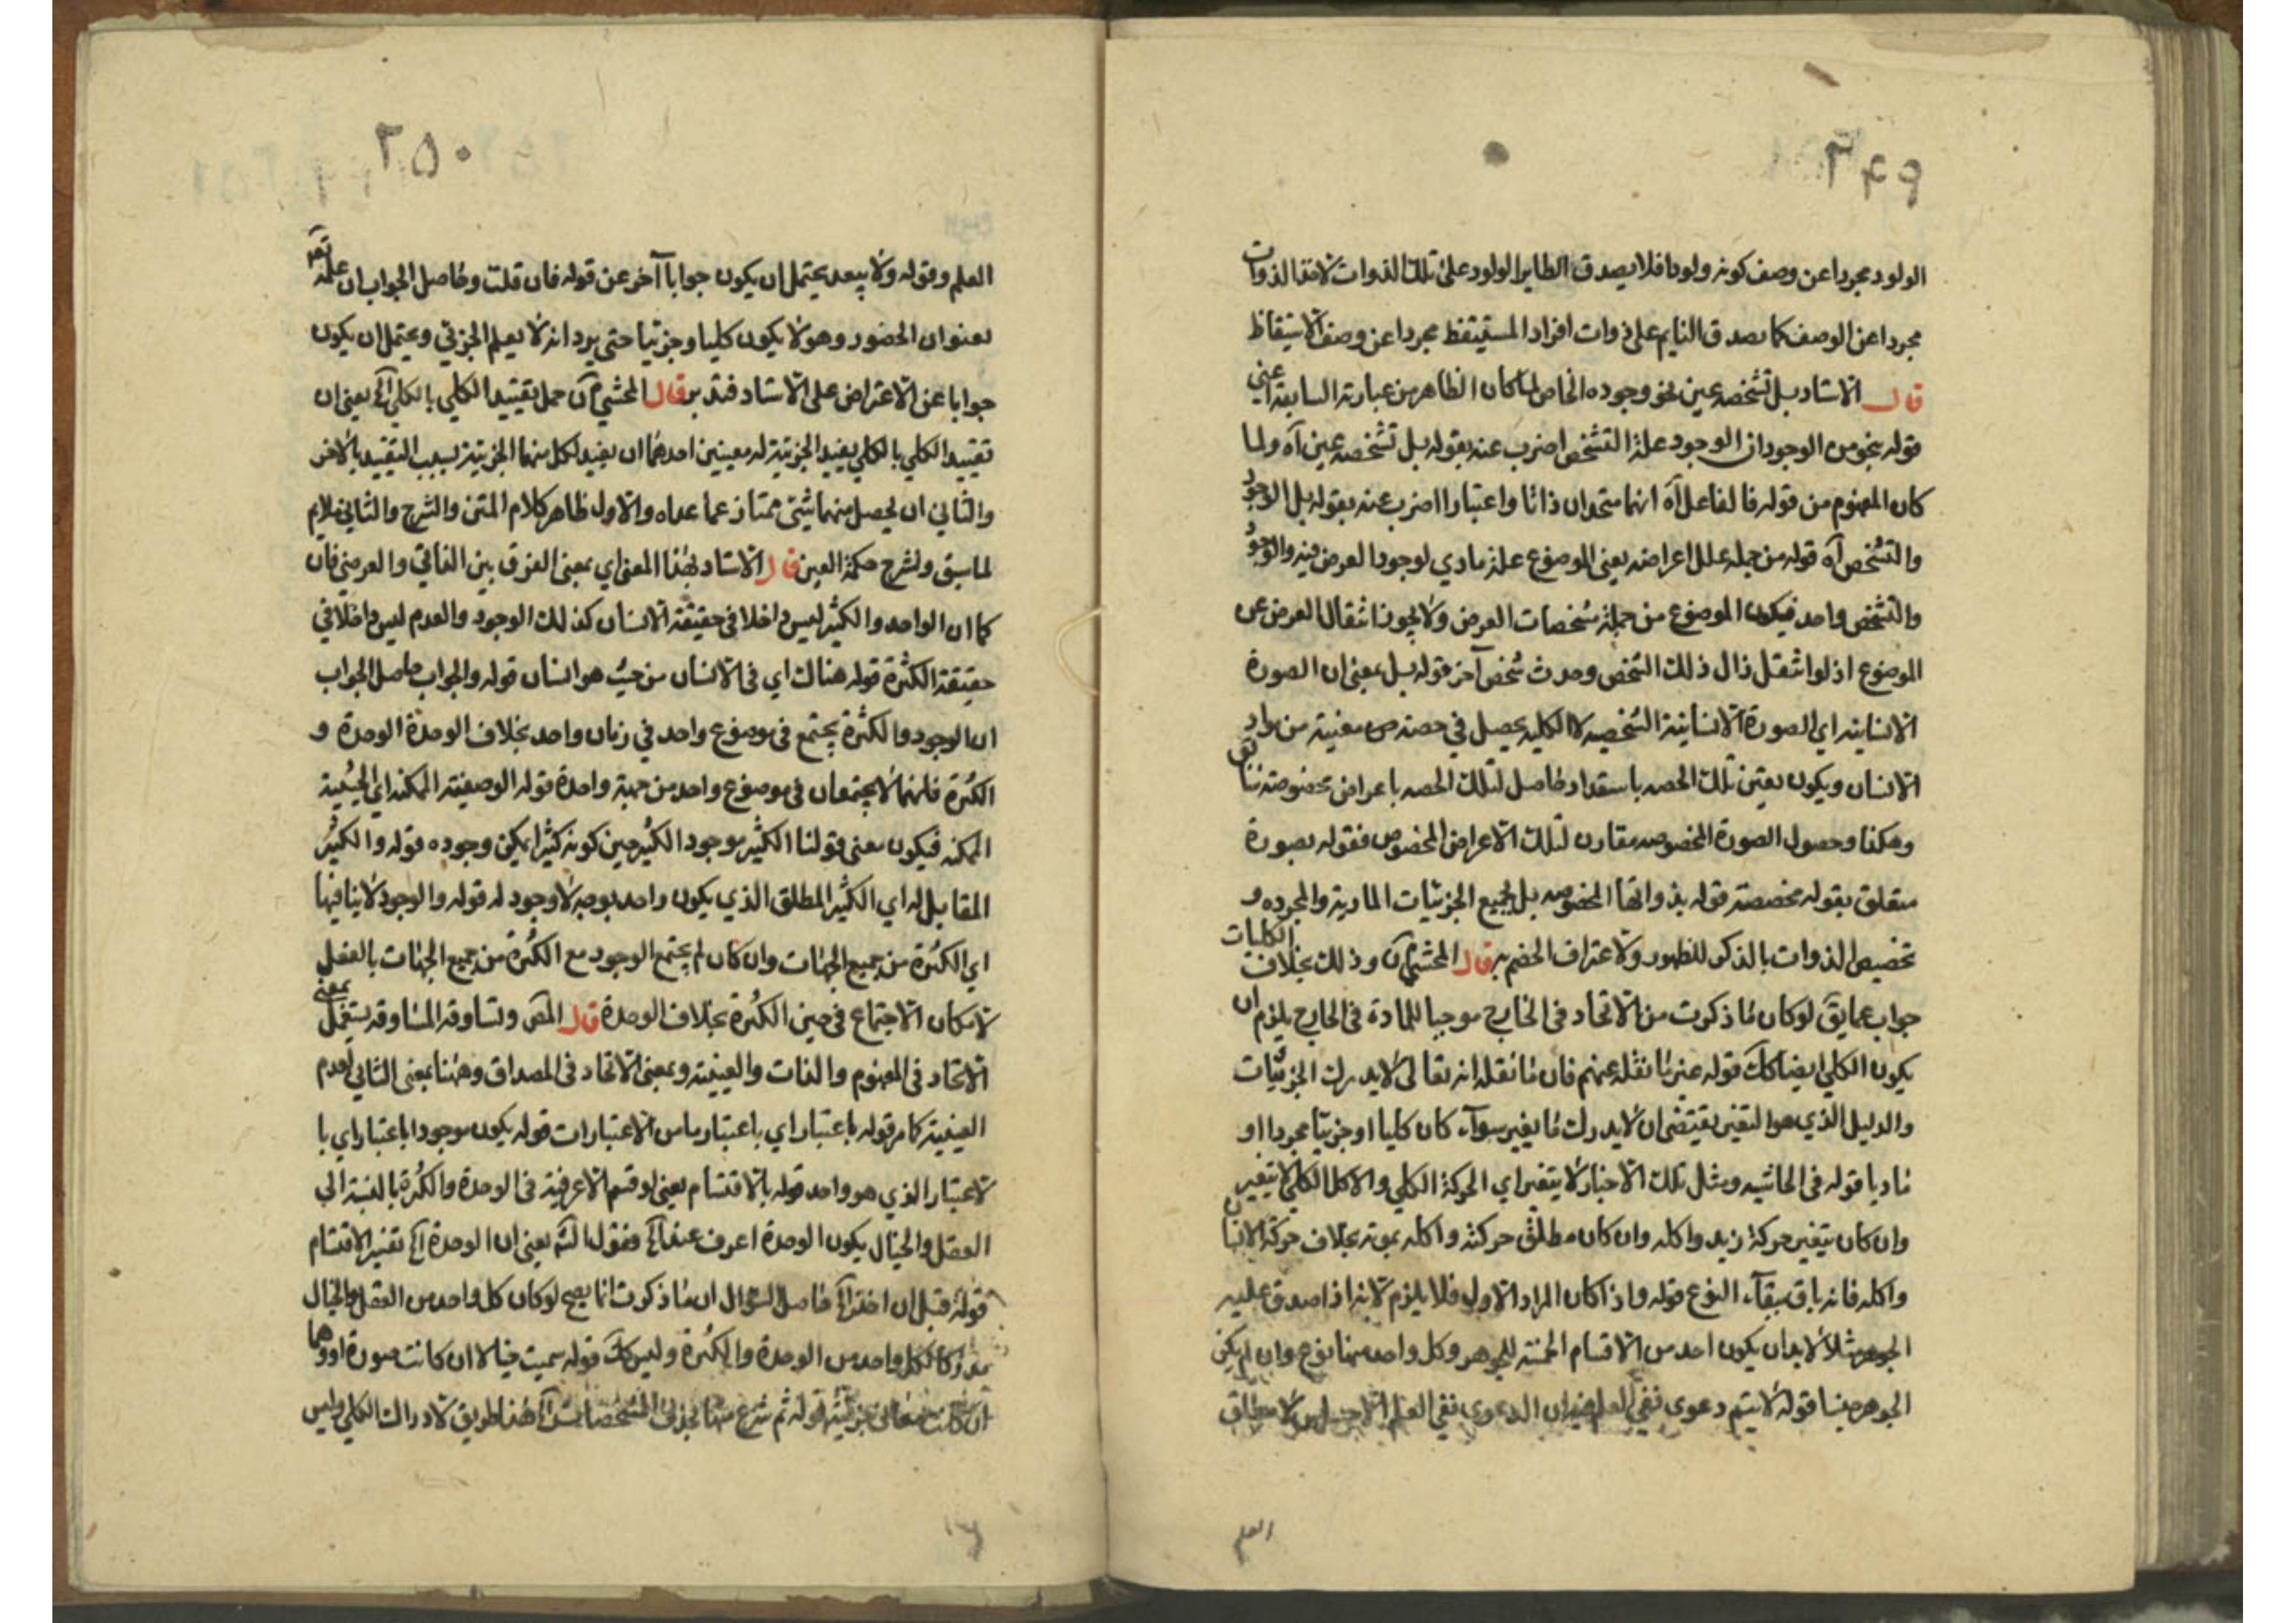 ٢٤٩
الولود مجردا عن وصف كونه ولودا فلا يصدق الطاير الولود على تلك الذوات لا هذا الذوات
مجردا عن الوصف كما يصدق النايم على ذوات افراد المستيقظ مجردا عن وصف الاستيقاظ
قال الاستاد بل تشخصه عين نحو وجوده الخاص لما كان الظاهر من عبارته السابقة اعني
قوله بنحو من الوجود ان الوجود علة التشخص اضرب عنه بقوله بل تشخصه عين آه ولما
كان المفهوم من قوله فالفاعل آه انهما متحدان ذاتا واعتبارا اضرب عنه بقوله بل الوجود
والتشخص آه قوله من جملة علل اعراضه يعني الموضوع علة مادي لوجود العرض فيه والوجود
والتشخص واحد فيكون الموضوع من جملة مشخصات العرض ولا يجوز انتقال العرض عن
الموضوع اذ لو انتقل زال ذلك الشخص وحدث شخص آخر قوله بل بمعنى ان الصورة
الانسانية اي الصورة الانسانية الشخصية لا الكلية يحصل في حصته معينة من مواد
الانسان ويكون تعين تلك الحصه باستعداد حاصل لتلك الحصه باعراض مخصوصة
وهكذا وحصول الصورة المخصوصه مقارن لتلك الاعراض المخصوص فقوله بصورة
متعلق بقوله مخصصة قوله بذواتها المخصوصه بل لجميع الجزئيات المادية والمجرده و
تخصيص الذوات بالذكر للظهور ولاعتراف الخصم به قال المحشي آه وذلك بخلاف الكليات
جواب عما يق لو كان ما ذكرت من الاتحاد في الخارج موجبا للمادة في الخارج يلزم ان
يكون الكلي ايضا كك قوله عين ما نقله عنهم فان ما نقله انه تعالى لا يدرك الجزئيات
والدليل الذي هو التغير يقتضي ان لا يدرك ما يتغير سواء كان كليا او جزئيا مجردا او
ماديا قوله في الحاشيه ومثل تلك الاخبار لا يتغير اي الحركة الكلي والاكل الكلي لا يتغير
وان كان يتغير حركة زيد واكله وان كان مطلق حركته واكله بموته بخلاف حركة الانسان
واكله فانه باق ببقاء النوع قوله واذا كان المراد الاول فلا يلزم لانه اذا صدق عليه
الجوهر مثلا لا بد ان يكون احد من الاقسام الخمسة للجوهر وكل واحد منها نوع وان لم يكن
الجوهر جنسا قوله لا يتم دعوى نفي العلم فان الدعوى نفي العلم لا مطلق
العلم
٢٥٠
العلم وقوله ولا يبعد يحتمل ان يكون جوابا آخر عن قوله فان قلت وحاصل الجواب ان علمه تعه
بعنوان الحضور وهو لا يكون كليا وجزئيا حتى يرد انه لا يعلم الجزئي ويحتمل ان يكون
جوابا عن الاعتراض على الاستاد فتدبر قال المحشي آن حمل تقييد الكلي بالكلي آه يعني ان
تقييد الكلي بالكلي يفيد الجزئية له معنيين احدهما ان يفيد لكل منهما الجزئية بسبب التقييد بالاخر
والثاني ان يحصل منهما شئ ممتاز عما عداه والاول ظاهر كلام المتن والشرح والثاني ملايم
لما سبق ولشرح حكمة العين قال الاستاد بهذا المعنى اي بمعنى الفرق بين الذاتي والعرضي فان
كما ان الواحد والكثير ليس داخلا في حقيقة الانسان كذلك الوجود والعدم ليس داخلا في
حقيقة الكثرة قوله هناك اي في الانسان من حيث هو انسان قوله والجواب حاصل الجواب
ان الوجود والكثرة يجتمع في موضوع واحد في زمان واحد بخلاف الوحدة الوحدة و
الكثرة فانهما لا يجتمعان في موضوع واحد من جهة واحدة قوله الوصفيته الممكنه اي الحينية
الممكنه فيكون معنى قولنا الكثير موجود الكثير حين كونه كثيرا يمكن وجوده قوله والكثير
المقابل له اي الكثير المطلق الذي يكون واحد بوجه لا وجود له قوله والوجود لا ينافيها
اي الكثرة من جميع الجهات وان كان لم يجتمع الوجود مع الكثرة من جميع الجهات بالفعل
لامكان الاجتماع في حين الكثرة بخلاف الوحدة قال المص وتساوقه المساوقه يستعمل بمعنى
الاتحاد في المفهوم والذات والعينية وبمعنى الاتحاد في المصداق وههنا بمعنى الثاني لعدم
العينية كما مر قوله باعتبار اي باعتبار ما من الاعتبارات قوله يكون موجودا باعتبار اي با
لاعتبار الذي هو واحد قوله بالاقتسام يعني لو قسم الاعرفية في الوحدة والكثرة بالنسبة الى
العقل والخيال يكون الوحدة اعرف عند آه فقول الش يعني ان الوحدة آه تفسير الاقتسام
قوله قبل ان اخذ آه حاصل السؤال ان ما ذكرت انما يصح لو كان كل واحد من العقل والخيال
مدركا لكل واحد من الوحدة والكثرة وليس كك قوله سميت خيالا ان كانت صورة او وهما
ان كانت معاني جزئية قوله ثم شرع هذا طريق لادراك الكلي وليس